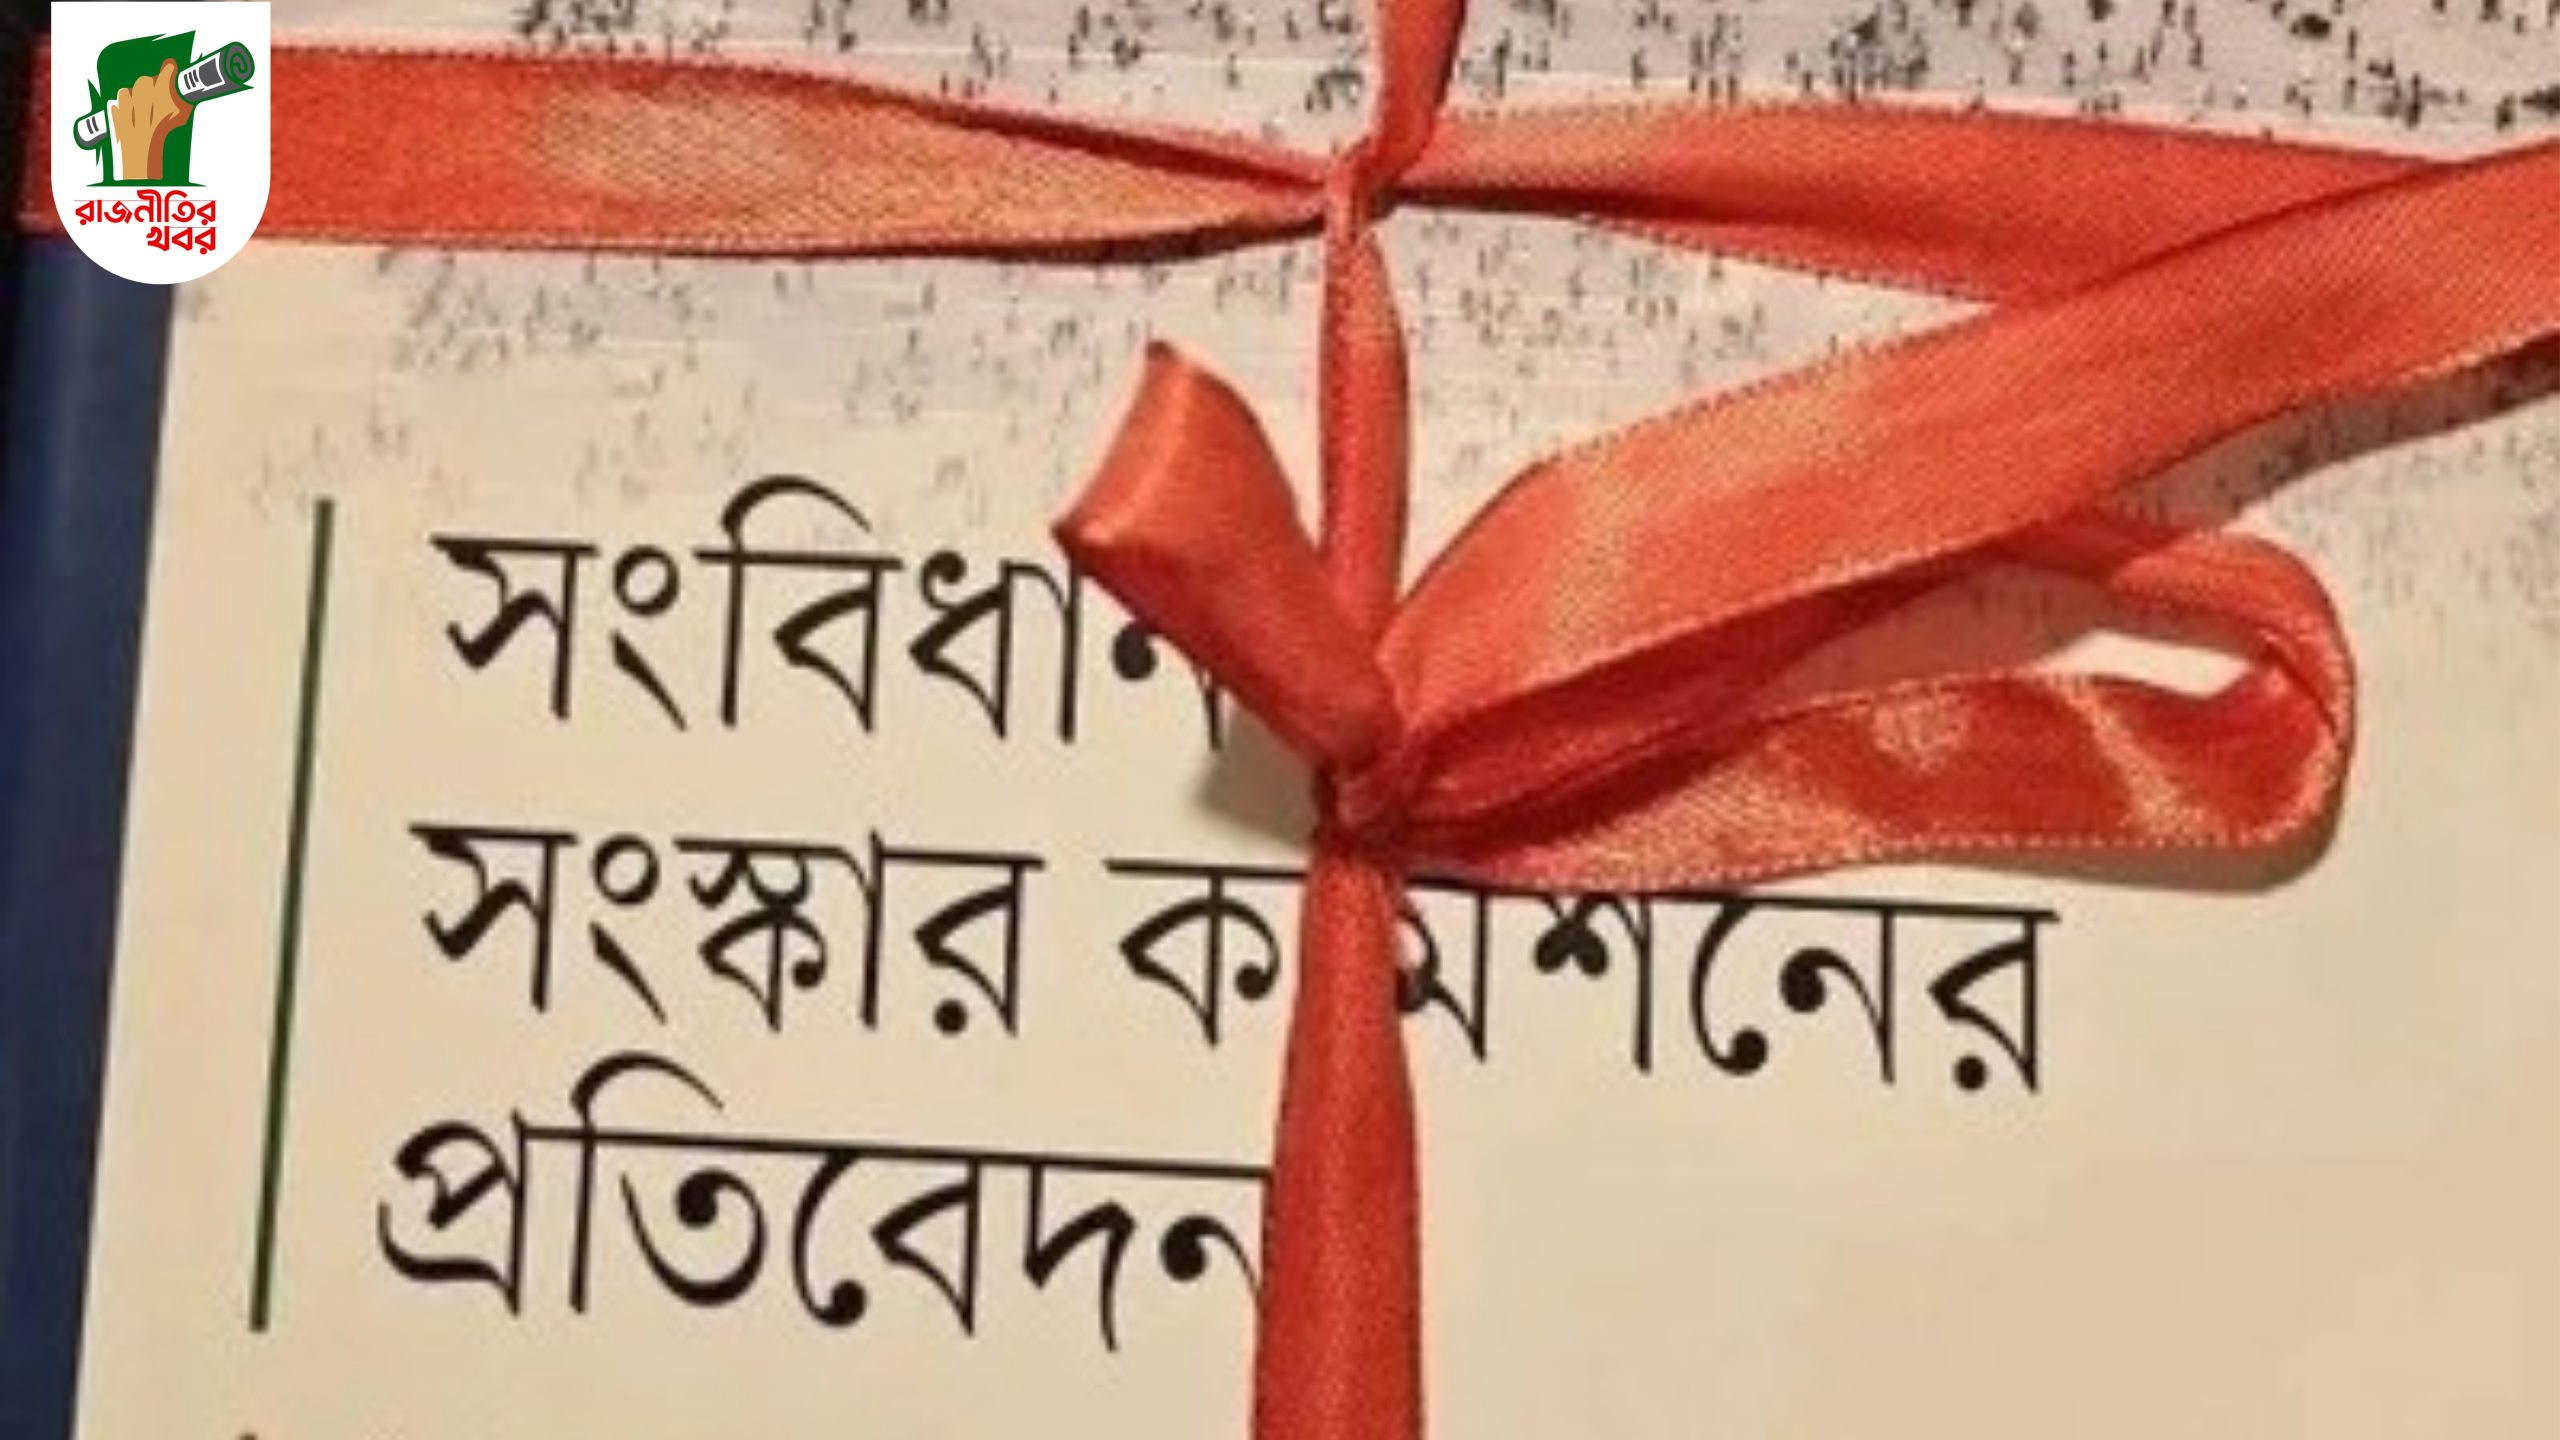 রাজনীতির
খবর
সংবিধান
সংস্কার কমিশনের
প্রতিবেদন